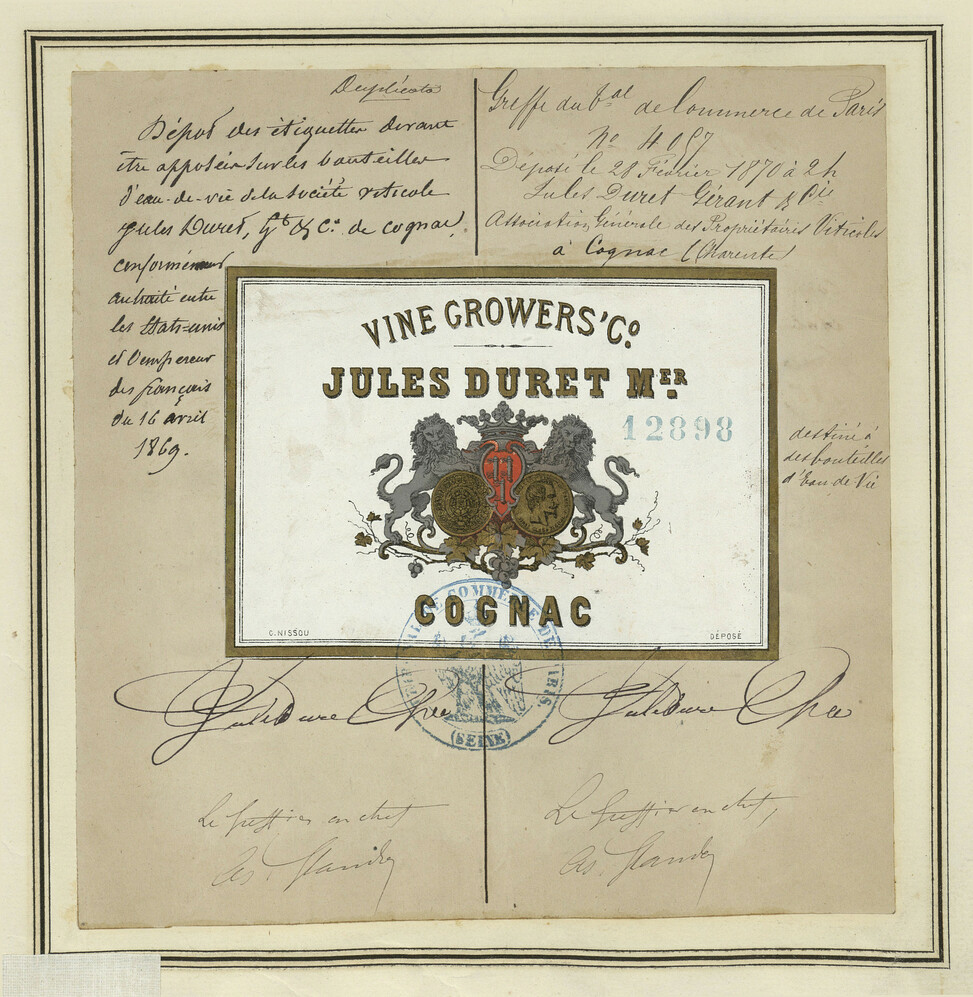 Duplicata
Dépôt des étiquettes devant
être apposées sur les bouteilles
d'eau-de-vie de la Société viticole
Jules Duret, Gt & Cie de Cognac,
conformément
au traité entre
les Etats-unis
et l'empereur
des français
du 16 avril
1869.
Greffe du bal de Commerce de Paris
No 4057
Déposé le 28 Février 1870 à 2h
Jules Duret Gérant & Cie
Association Générale des Propriétaires Viticoles
à Cognac (Charente)
VINE GROWERS' Co.
JULES DURET MER.
12898
destiné à
des bouteilles
d'eau de Vie
COGNAC
C. NISSOU
DÉPOSÉ
TRIBUNAL DE COMMERCE DE PARIS.
(SEINE)
Jules Duret & Cie
Jules Duret & Cie
Le greffier en chef
Le greffier en chef,